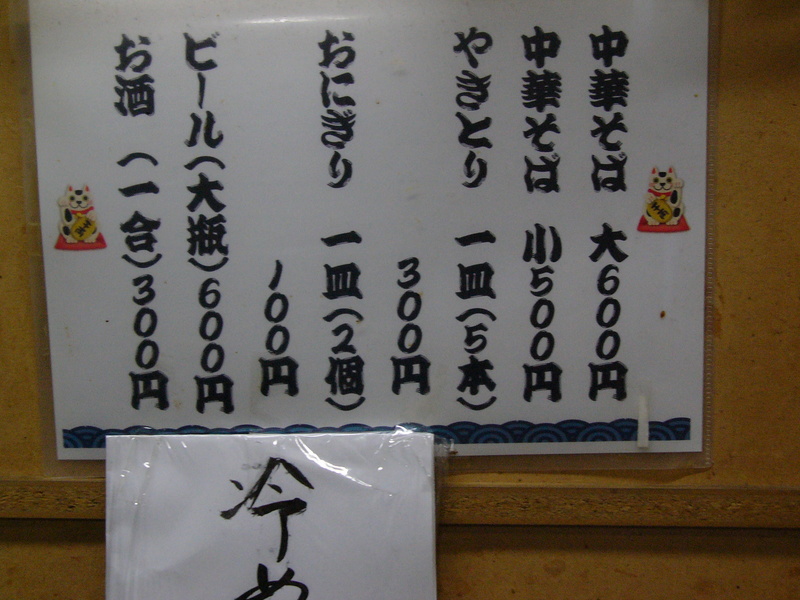 中華そば 大600円
中華そば 小500円
やきとり 一皿(5本)
300円
おにぎり 一皿(2個)
100円
ビール(大瓶)600円
お酒 (一合)300円
冷め